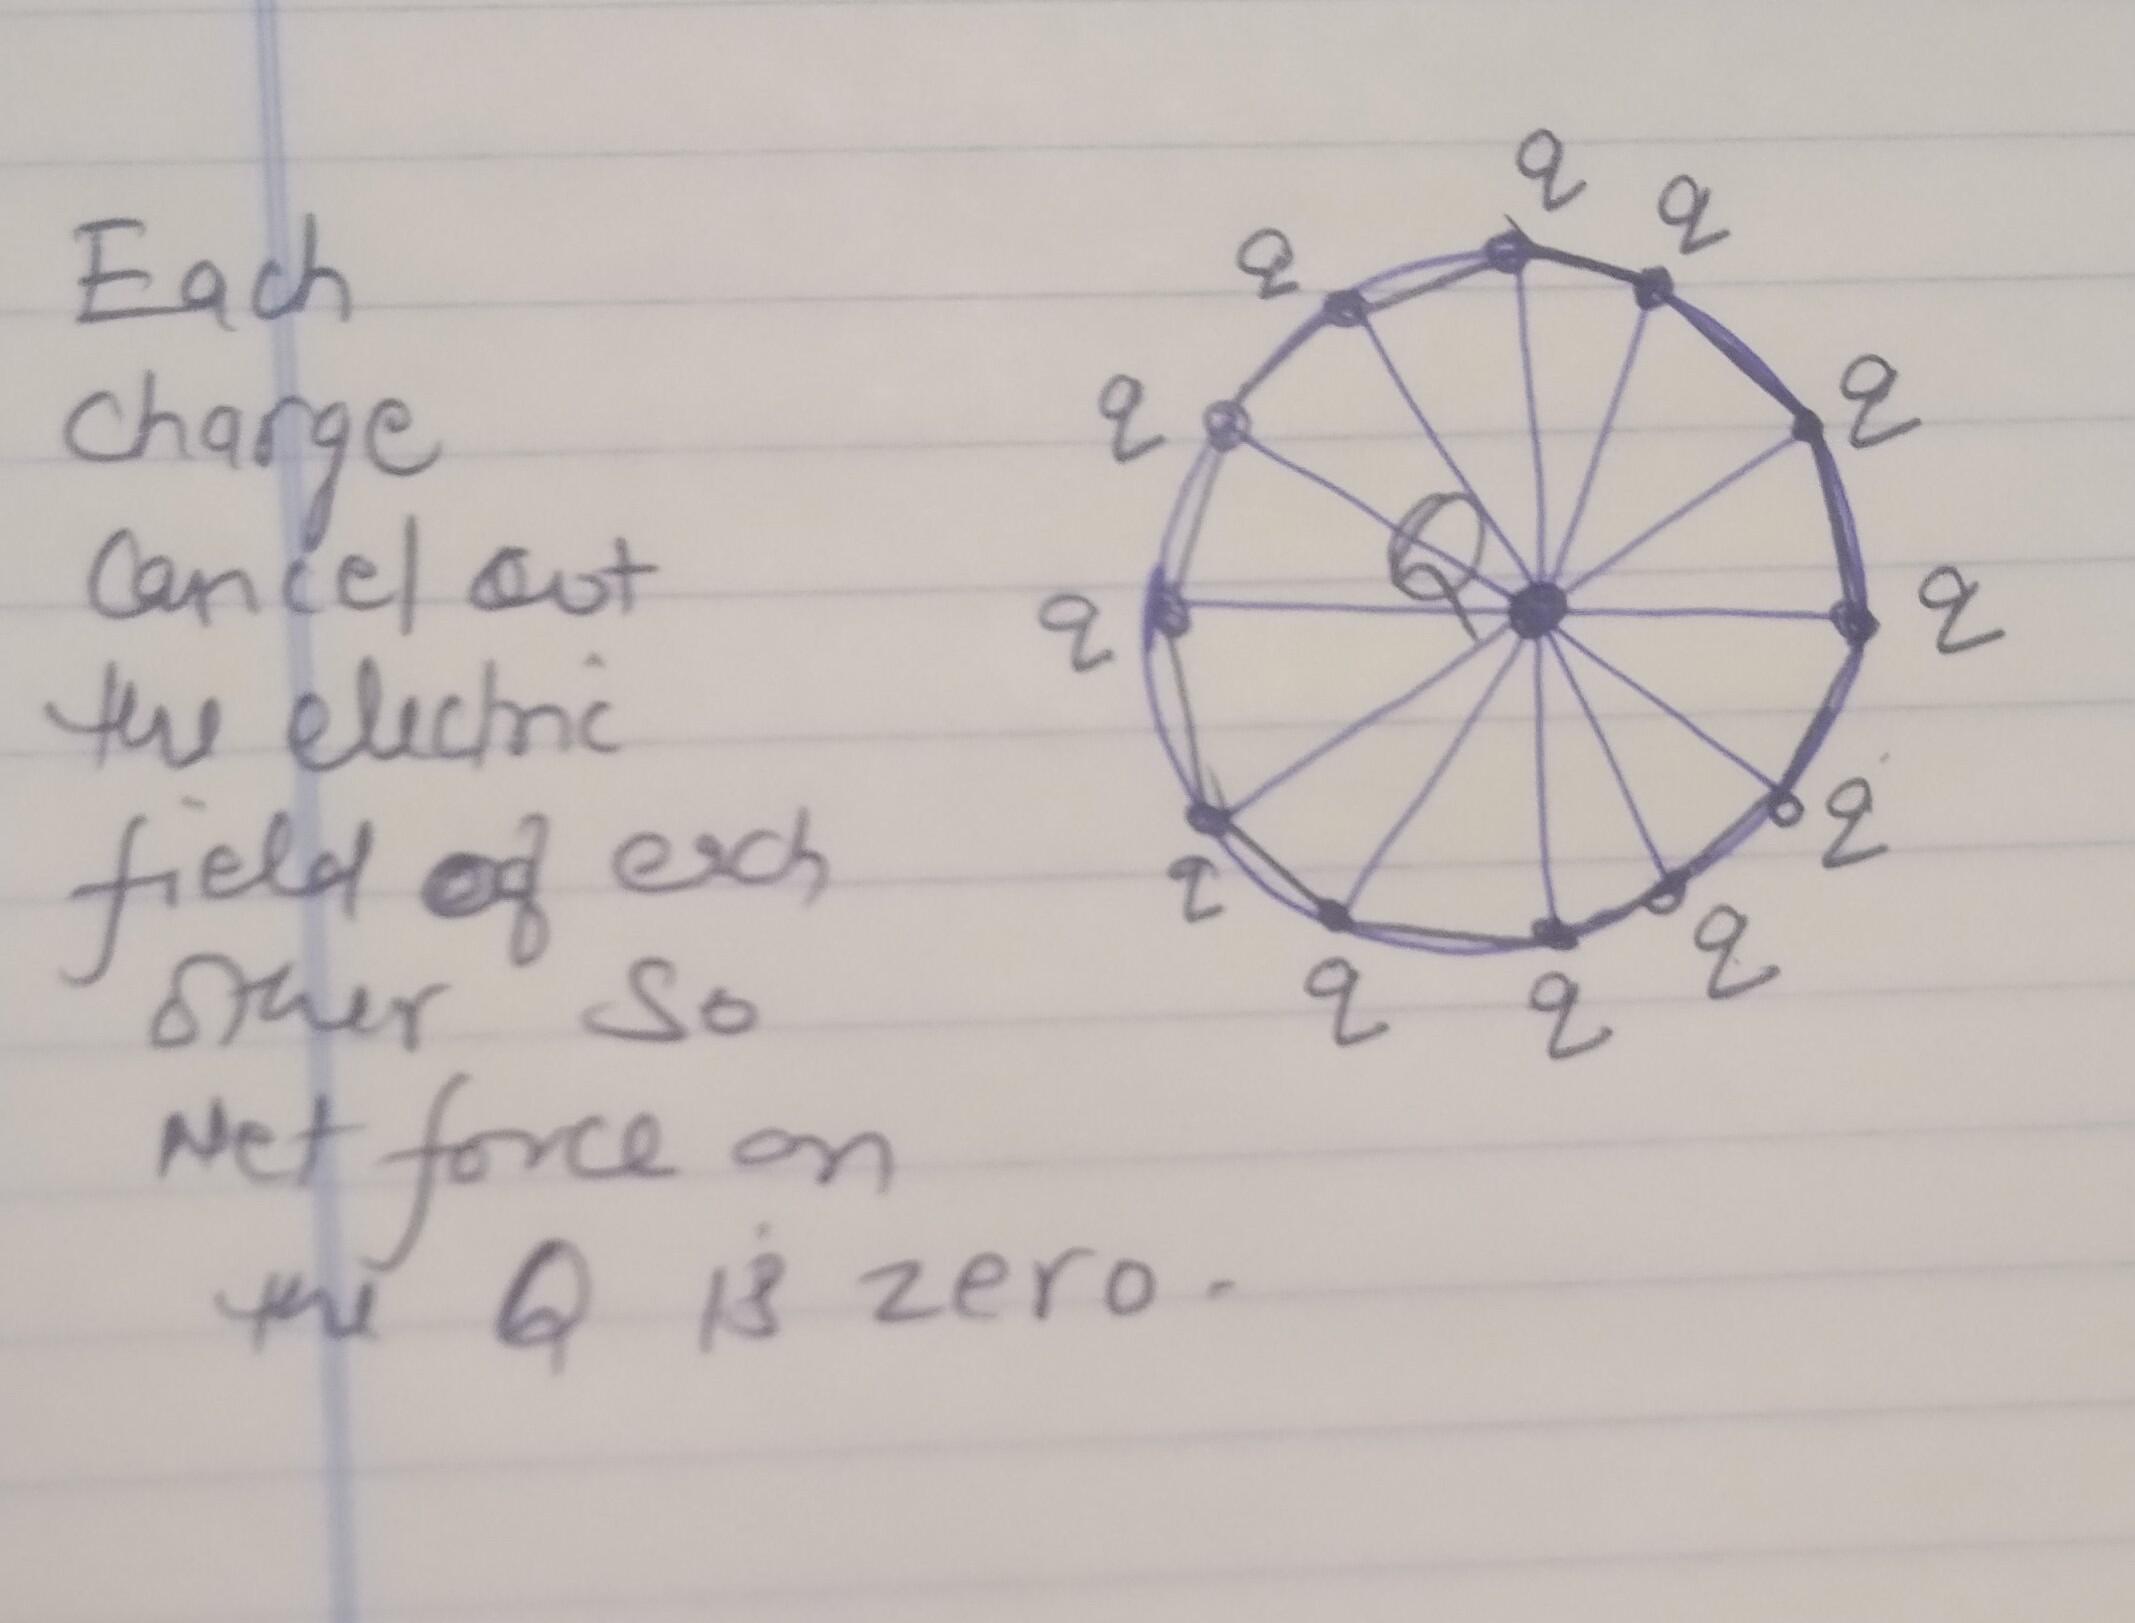 Each
charge
cancel out
the electric
field of each
other so
Net force on
the Q is zero.
q
q
q
q
q
q
q
q
q
q
q
q
Q